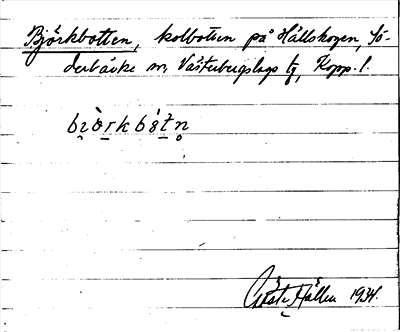 Björkbotten, kolbotten på Hållskogen, Sö-
derbärke sn, Västerbergslags tg, Kopp. l.
Gösta Hållen 1934.